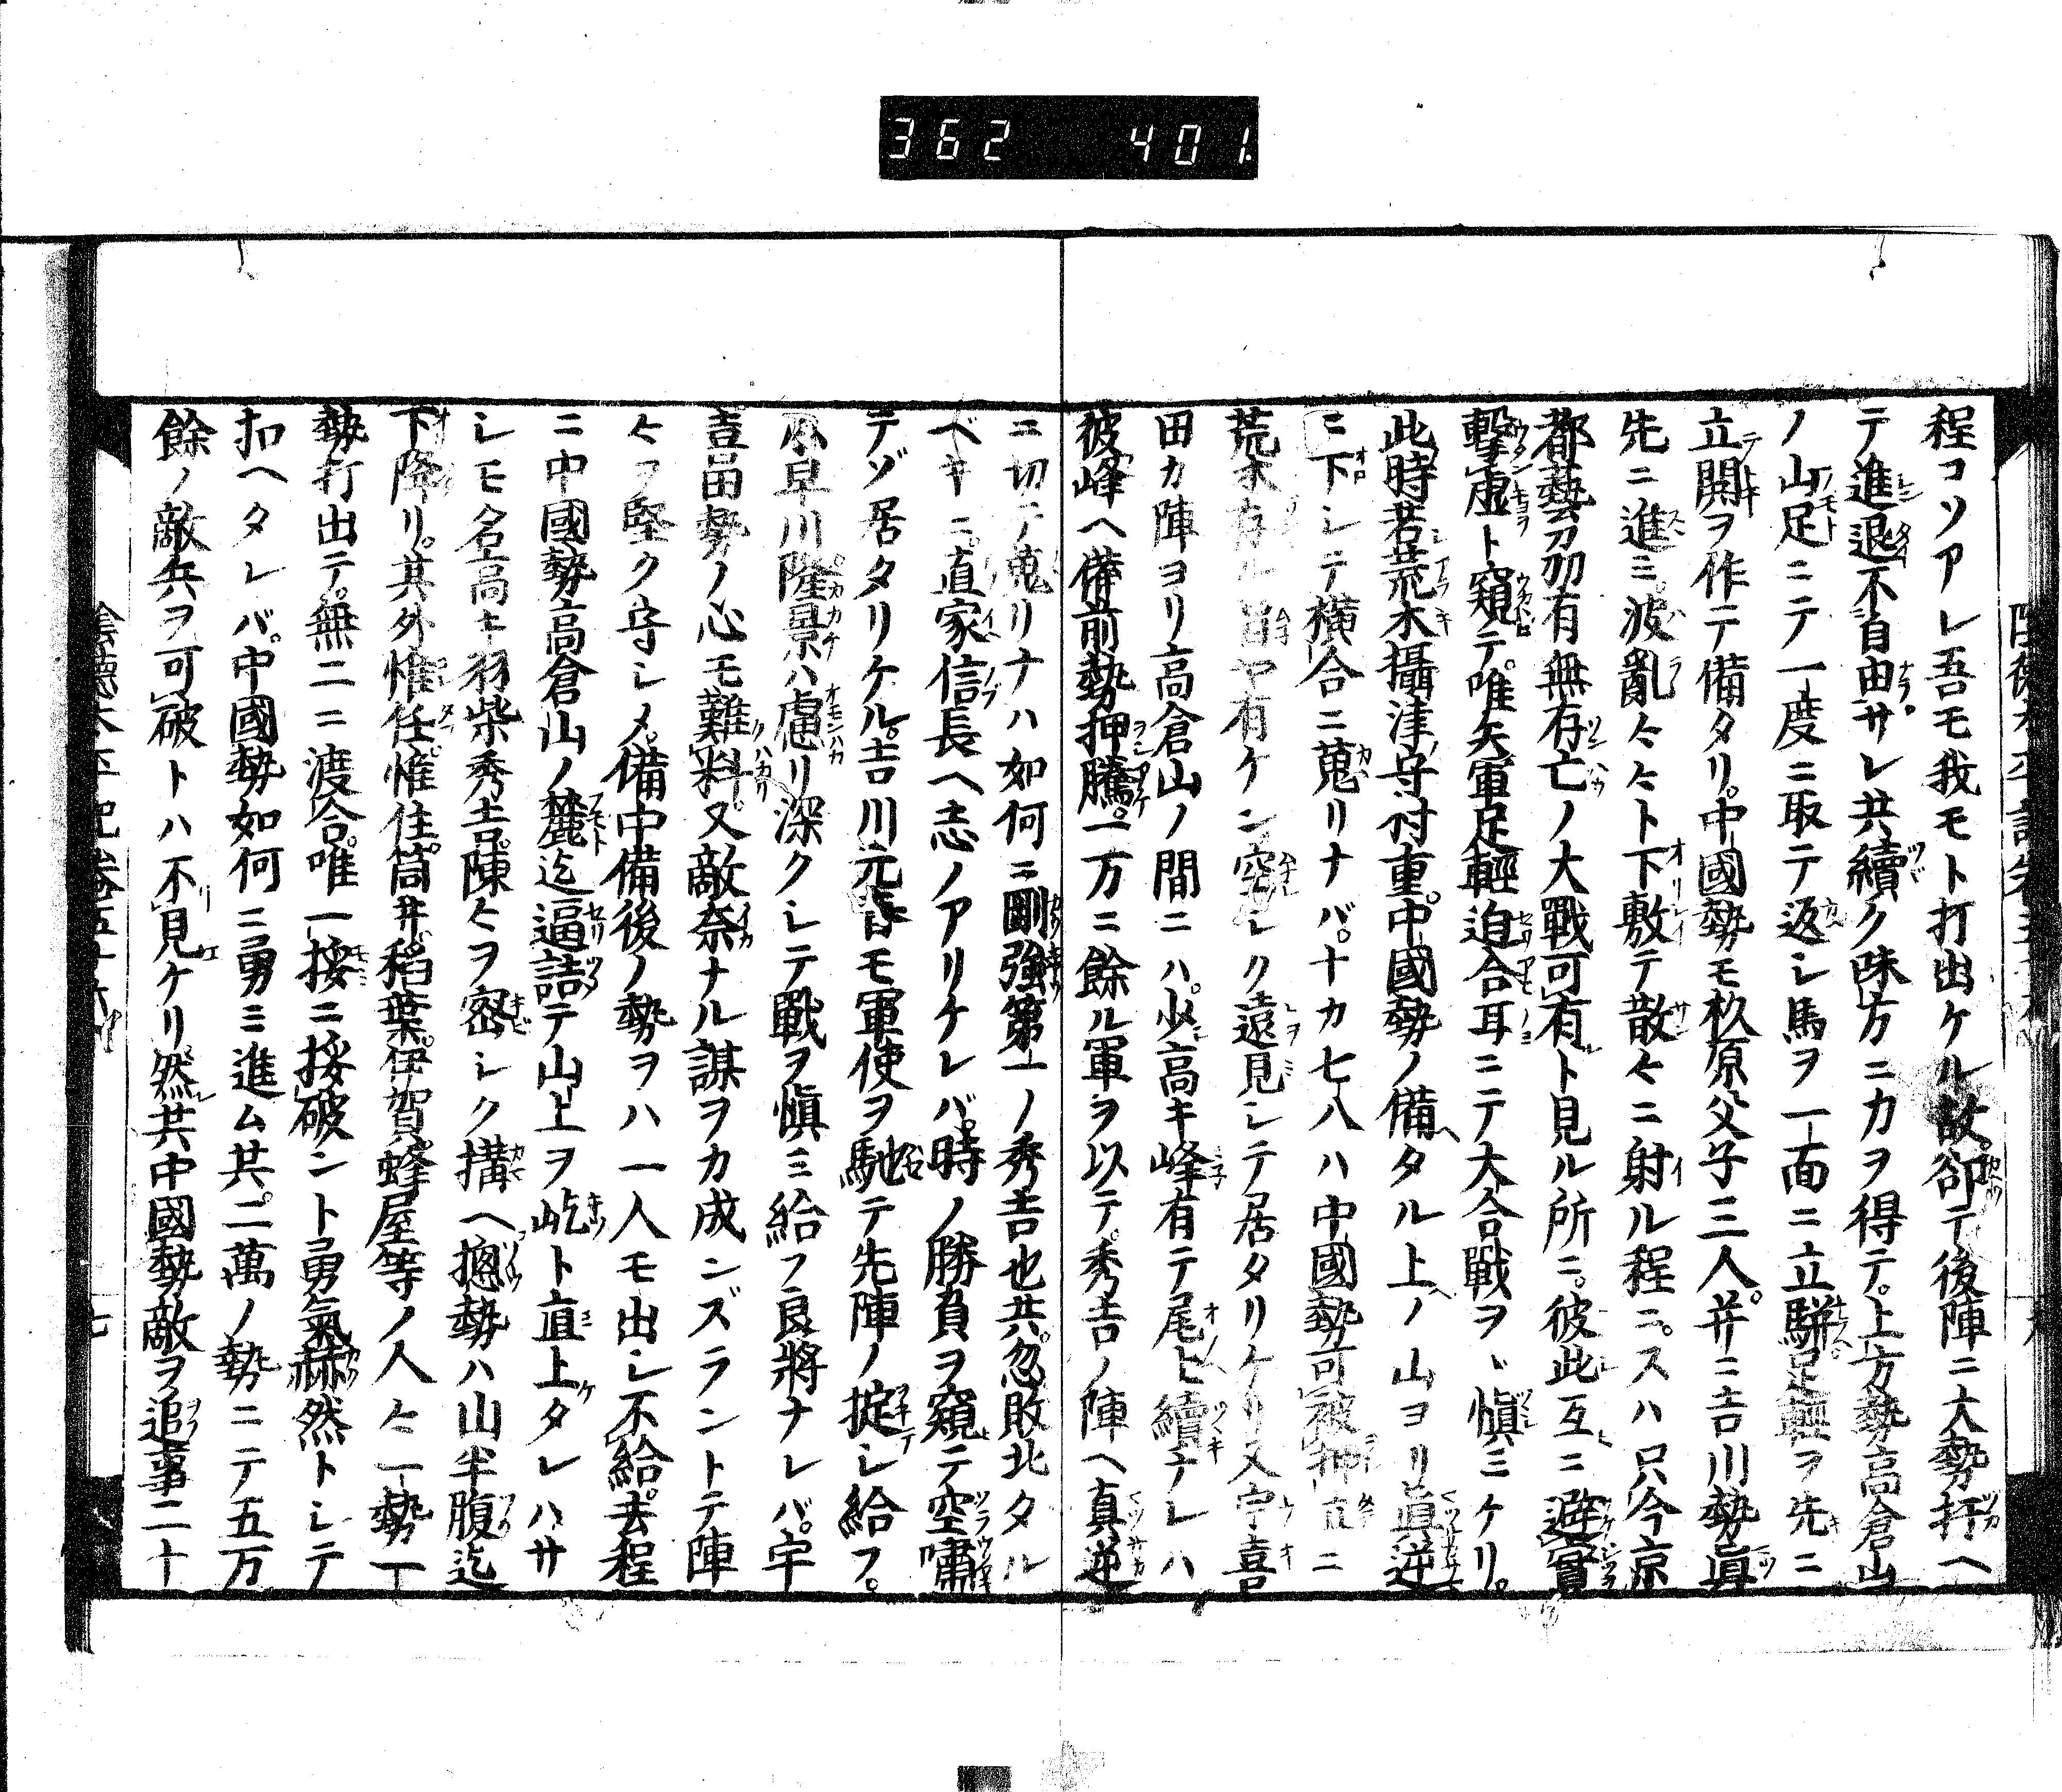 362 401.
程コソアレ吾モ我モト打出ケル故却テ後陣ニ大勢打ヘ
テ進退不自由サレ共續ク味方ニカヲ得テ。上方勢高倉山
ノ山足ニテ一度ニ取テ返シ馬ヲ一面ニ立駢。足輕ヲ先ニ
立鬨ヲ作テ備タリ。中國勢モ杦原父子三人。并ニ吉川勢眞
先ニ進ミ。波亂々々ト下敷テ散々ニ射ル程ニ。スハ只今京
都藝刕有無存亡ノ大戰可有ト見ル所ニ。彼此互ニ避實
擊虛ト窺テ。唯矢軍足輕迫合耳ニテ大合戰ヲヽ愼ミケリ。
此時若荒木攝津守村重。中國勢ノ備タル上ノ山ヨリ眞逆
ニ下シテ横合ニ蒐リナバ。十カ七八ハ中國勢可被押立ニ
荒木存ル旨ヤ有ケン空シク遠見シテ居タリケリ又宇喜
田カ陣ヨリ高倉山ノ間ニハ。少高キ峰有テ尾ヒ續ナレハ
彼峰ヘ備前勢押騰。一万ニ餘ル軍ヲ以テ。秀吉ノ陣ヘ真逆
ニ切テ蒐リナハ如何ニ剛強第一ノ秀吉也共。忽敗北タル
ベキニ。直家信長ヘ志ノアリケレバ。時ノ勝負ヲ窺テ空嘯
テゾ居タリケル。吉川元春モ軍使ヲ馳テ先陣ノ掟シ給フ。
小早川隆景ハ慮リ深クシテ戰ヲ愼ミ給フ良將ナレバ。宇
喜田勢ノ心モ難料。又敵奈ナル謀ヲカ成ンズラントテ陣
々ヲ堅ク守シメ。備中備後ノ勢ヲハ一人モ出シ不給。去程
ニ中國勢高倉山ノ麓迄逼詰テ山上ヲ屹ト直上タレハサ
シモ名高キ羽柴秀吉。陳々ヲ密シク搆ヘ摠勢ハ山半腹迄
下降リ。其外惟任惟住。筒井。稻葉。伊賀。蜂屋等ノ人々一勢一
勢打出テ。無二ニ渡合。唯一挼ニ挼破ント勇氣赫然トシテ
扣ヘタレバ。中國勢如何ニ勇ミ進ム共。二萬ノ勢ニテ五万
餘ノ敵兵ヲ可破トハ不見ケリ。然共中國勢敵ヲ追事二十
七